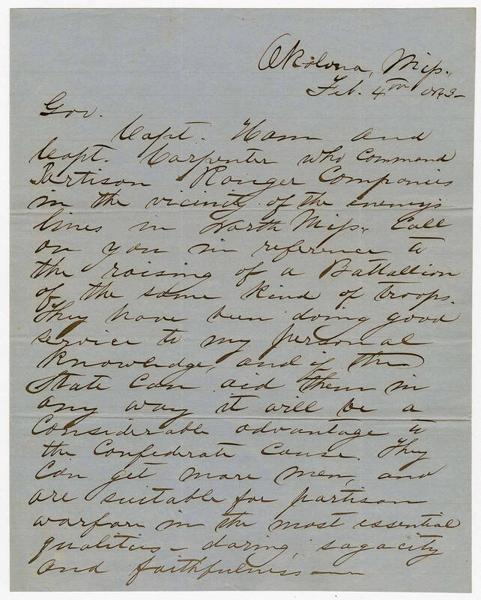 Okolona, Miss.
Feb. 4th 1863-
Gov.
Capt. Ham and
Capt. Carpenter who command
Pertison Ranger Companies
in the vicinity of the enemys
lines in North Miss. Call
on you in reference to
the raising of a Battallion
of the same kind of troops.
They have been doing good
service to my personal
knowledge, and if the
State can aid them in
any way it will be a
considerable advantage to
the Confederate Cause. They
can get more men, and
are suitable for partison
warfare in the most essential
qualities - daring, sagacity
and faithfulness —